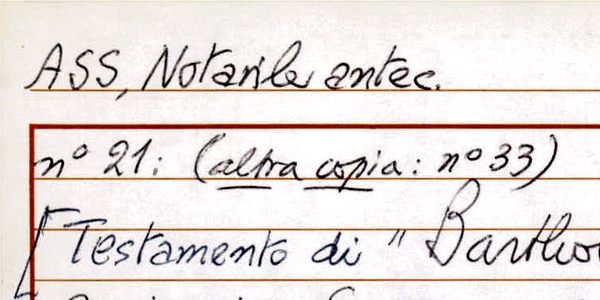 ASS, Notarile antec.
n° 21: (altra copia: n° 33)
[Testamento di "Bartho